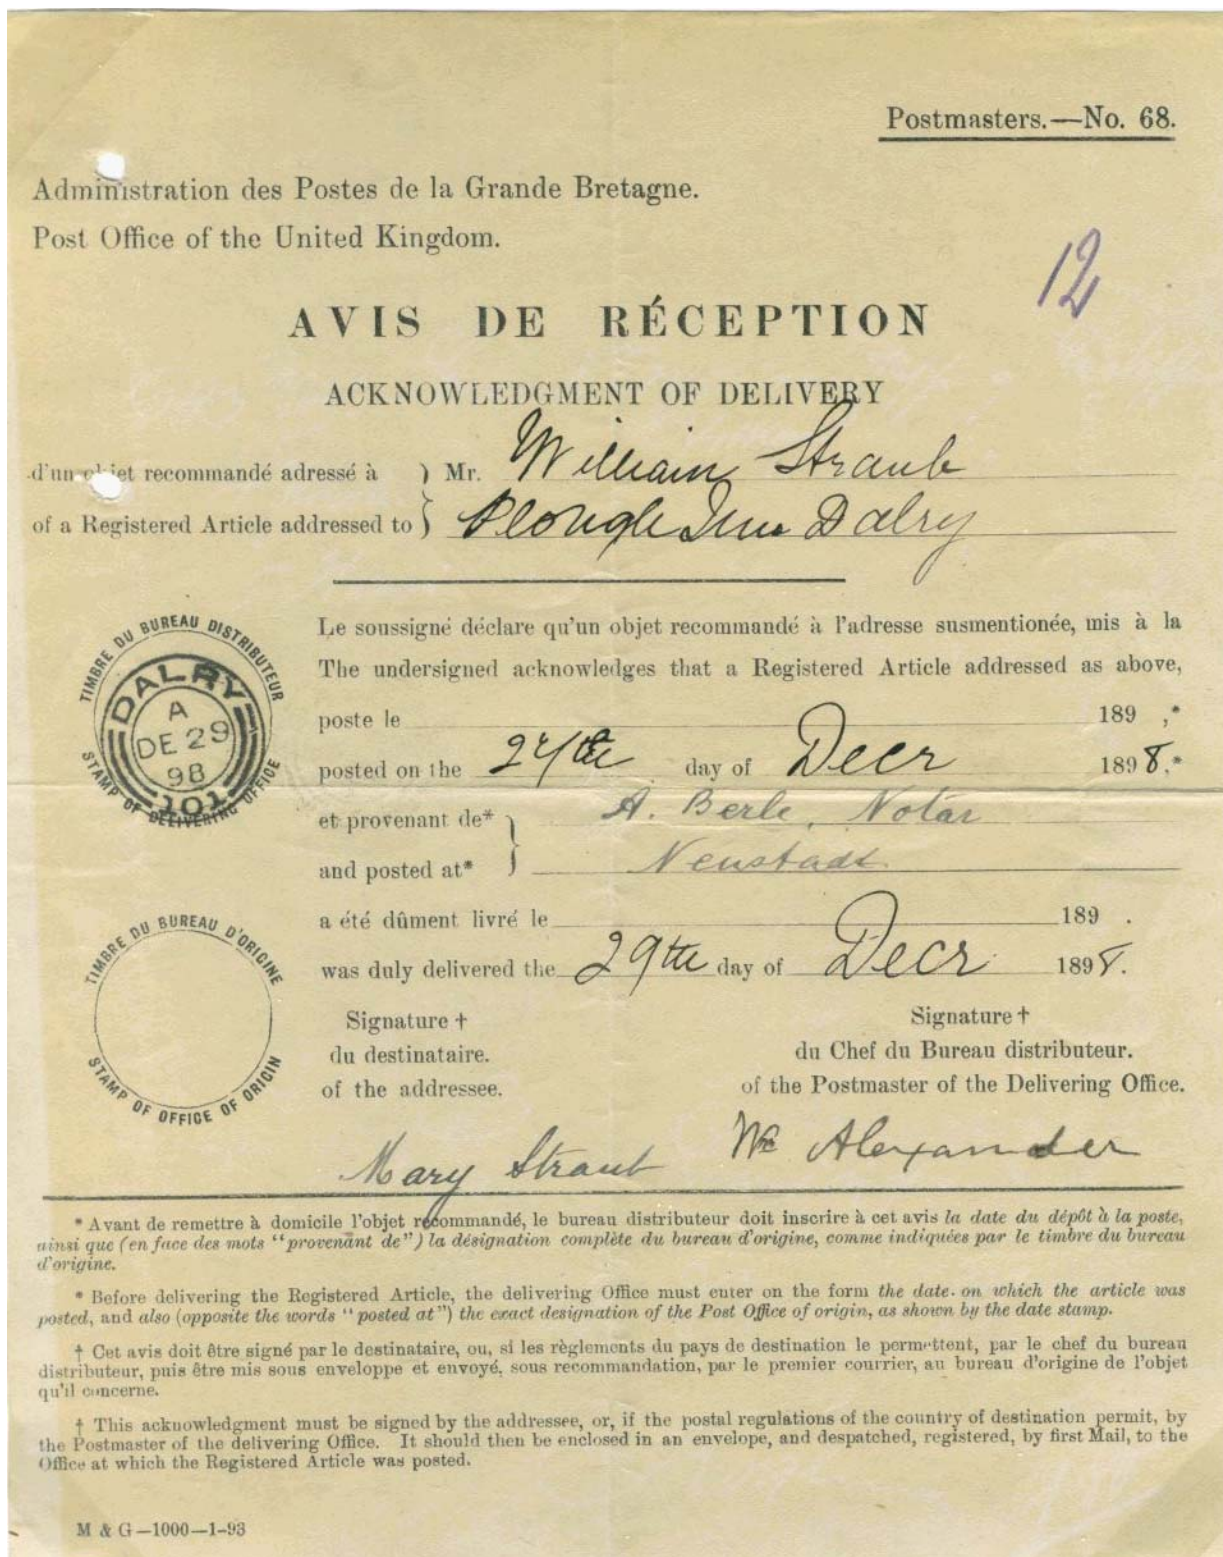 Postmasters.—No. 68.
Administration des Postes de la Grande Bretagne.
Post Office of the United Kingdom.
12
AVIS DE RÉCEPTION
ACKNOWLEDGMENT OF DELIVERY
d'un objet recommandé adressé à } Mr. William Straub
of a Registered Article addressed to } Plough Inn Dalry
TIMBRE DU BUREAU DISTRIBUTEUR
STAMP OF DELIVERING OFFICE
DALRY
A
DE 29
98
101
Le soussigné déclare qu'un objet recommandé à l'adresse susmentionée, mis à la
The undersigned acknowledges that a Registered Article addressed as above,
poste le 189 ,*
posted on the 24th day of Decr 1898.*
et provenant de* } A. Berle, Notar
and posted at* } Neustadt
a été dûment livré le 189 .
was duly delivered the 29th day of Decr 1898.
TIMBRE DU BUREAU D'ORIGINE
STAMP OF OFFICE OF ORIGIN
Signature †
du destinataire.
of the addressee.
Signature †
du Chef du Bureau distributeur.
of the Postmaster of the Delivering Office.
Mary Straub
Wm Alexander
* Avant de remettre à domicile l'objet recommandé, le bureau distributeur doit inscrire à cet avis la date du dépôt à la poste,
ainsi que (en face des mots "provenant de") la désignation complète du bureau d'origine, comme indiquées par le timbre du bureau
d'origine.
* Before delivering the Registered Article, the delivering Office must enter on the form the date on which the article was
posted, and also (opposite the words "posted at") the exact designation of the Post Office of origin, as shown by the date stamp.
† Cet avis doit être signé par le destinataire, ou, si les règlements du pays de destination le permettent, par le chef du bureau
distributeur, puis être mis sous enveloppe et envoyé, sous recommandation, par le premier courrier, au bureau d'origine de l'objet
qu'il concerne.
† This acknowledgment must be signed by the addressee, or, if the postal regulations of the country of destination permit, by
the Postmaster of the delivering Office. It should then be enclosed in an envelope, and despatched, registered, by first Mail, to the
Office at which the Registered Article was posted.
M & G—1000—1-93